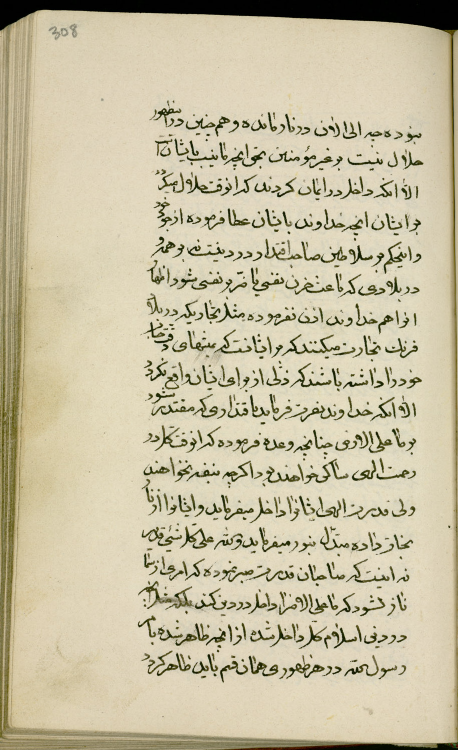 308
نبوده چه الی الان در نار مانده و هم چنین در این ظهور
حلال نیست بر غیر مؤمنین بحق آنچه مانیسب بایشان است
الا آنکه داخل در ایمان گردند که آنوقت حلال میگردد
بر ایشان آنچه خداوند بایشان عطا فرموده از جود خود
و این حکم بر سلاطین صاحب اقتدار در دین است نه بر همه و
در بلادی که باعث حزن نفسی یا ضر و نفسی شود اظهار
آنرا هم خداوند اذن نفرموده مثل تجاریکه در بلاد
فرنک تجارت میکنند که بر ایشانست که منتهای
خود را داشته باشند که ذلی از برای ایشان واقع نگردد
الا آنکه خداوند نصرت فرماید باقتداری که مقتدر شود
بر ما علی الارض چنانچه وعده فرموده که آنوقت کل در
رحمت الهی ساکن خواهند بود اگرچه بنفسه نخواهند
ولی قدرت الهی ایشانرا داخل میفرماید و ایشانرا از نار
نجات داده مبدل بنور میفرماید و الله علی کلشیئ قدیر
نه اینست که صاحبان قدرت صبر نموده که امری از سما
نازل شود که ما علی الارض را داخل در دین کند بلکه
در دین اسلام کل داخل شده از آنچه ظاهر شده بامر
رسول الله در هر ظهوری همان قسم باید ظاهر گردد